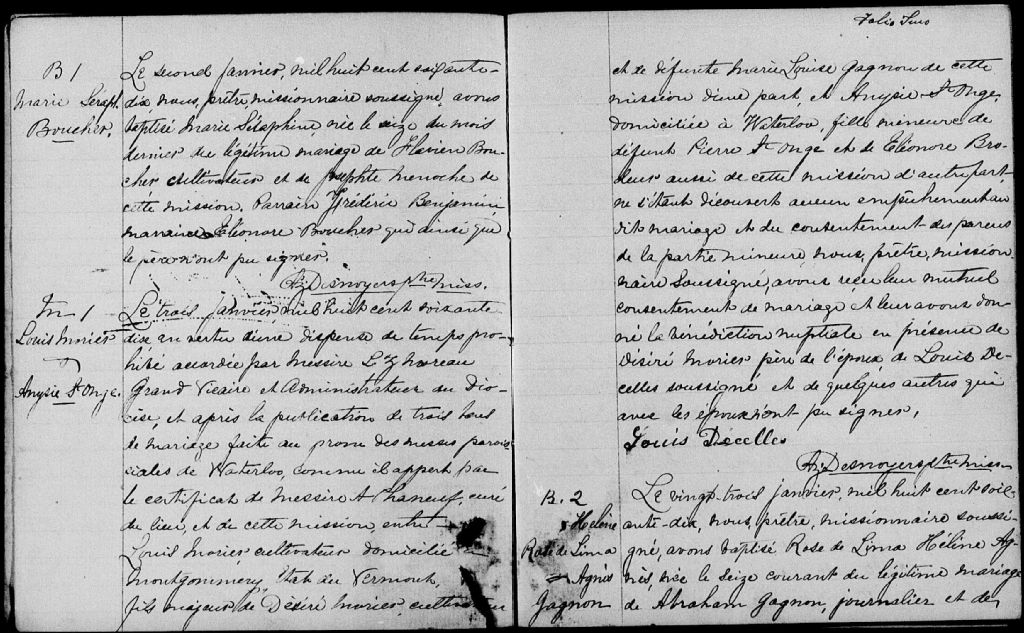 B 1
Marie Séraph.
Boucher.
Le second janvier, mil huit cent soixante-
dix nous, prêtre, missionnaire soussigné, avons
baptisé Marie Séraphine née le seize du mois
dernier du légitime mariage de Flavien Bou-
cher cultivateur et de Josephte Menoche de
cette mission. Parrain Frédéric Benjamin,
marraine Eléonore Boucher qui ainsi que
le père n'ont pu signer.
A. Desnoyers ptre miss.
M 1
Louis Morier
&
Anysie St Onge.
Le trois janvier, mil huit cent soixante
dix en vertu d'une dispense de temps pro-
hibé accordée par Messire L. Z. Moreau
Grand Vicaire et Administrateur du Dio-
cèse, et après la publication de trois bans
de mariage faite au prone des messes parois-
siales de Waterloo, comme il appert par
le certificat de Messire A Phaneuf, curé
du lieu, et de cette mission, entre
Louis Morier cultivateur domicilié à
Montgommery, Etat du Vermont,
fils majeur de Désiré Morier, cultivateur
Folio
et de défunte Marie Louise Gagnon de cette
mission d'une part, et Anysie St Onge,
domiciliée à Waterloo, fille mineure de
défunt Pierre St Onge et de Eléonore Bro-
deur aussi de cette mission d'autre part,
ne s'étant découvert aucun empêchement au
dit mariage et du consentement des parens
de la partie mineure, nous, prêtre, mission-
naire Soussigné, avons reçu leur mutuel
consentement de mariage et leur avons don-
né la bénédiction nuptiale en présence de
Désiré Morier père de l'époux de Louis De-
celles soussigné et de quelques autres qui
avec les époux n'ont pu signer.
Louis Décelles
A. Desnoyers ptre miss.
B. 2
Hélène
Rose de Lima
Agnès
Gagnon
Le vingt-trois janvier, mil huit cent soix-
ante-dix, nous, prêtre, missionnaire soussi-
gné, avons baptisé Rose de Lima Hélène Ag-
nès, née le seize courant du légitime mariage
de Abraham Gagnon, journalier et de